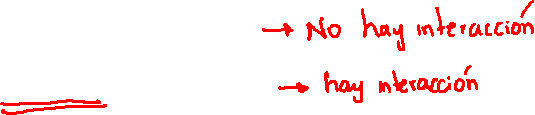 → No hay interacción
→ hay interacción